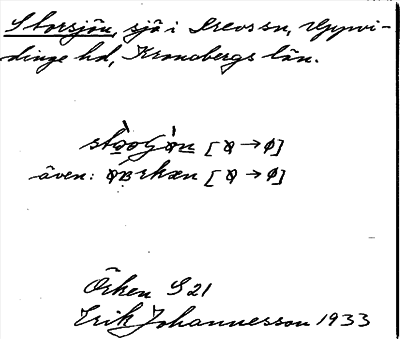 Storsjön, sjö i Drevs sn, Uppvi-
dinge hd, Kronobergs län.
även:
Örken S 21
Erik Johannesson 1933